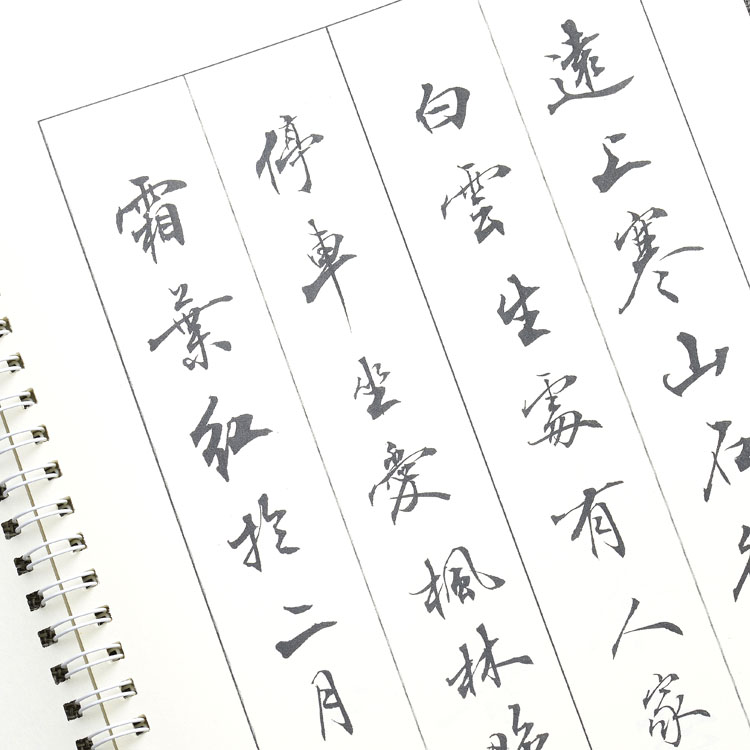 遠上寒山石
白雲生處有人家
停車坐愛楓林晚
霜葉紅於二月